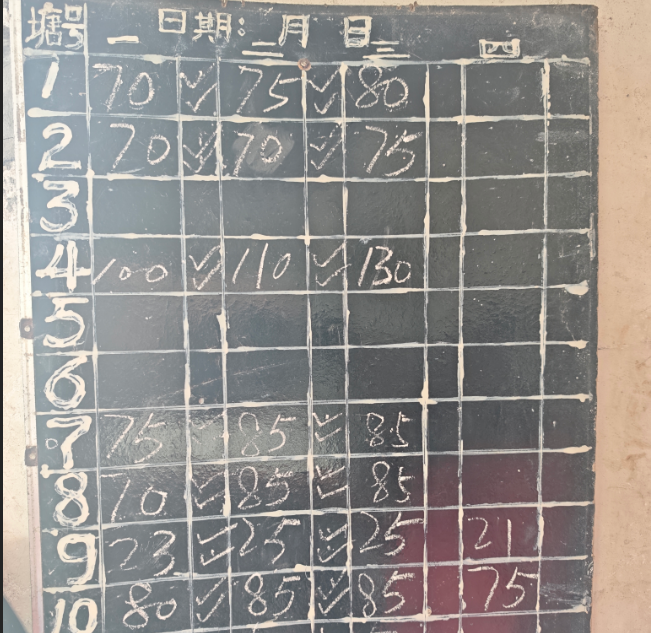 塘号 一 日期: 二 月 日 三 四
1 70 ✓✓ 75 ✓✓ 80
2 70 ✓✓ 70 ✓✓ 75
3
4 100 ✓✓ 110 ✓✓ 130
5
6
7 75 ✓✓ 85 ✓✓ 85
8 70 ✓✓ 85 ✓✓ 85
9 23 ✓✓ 25 ✓✓ 25 21
10 80 ✓✓ 85 ✓✓ 85 75